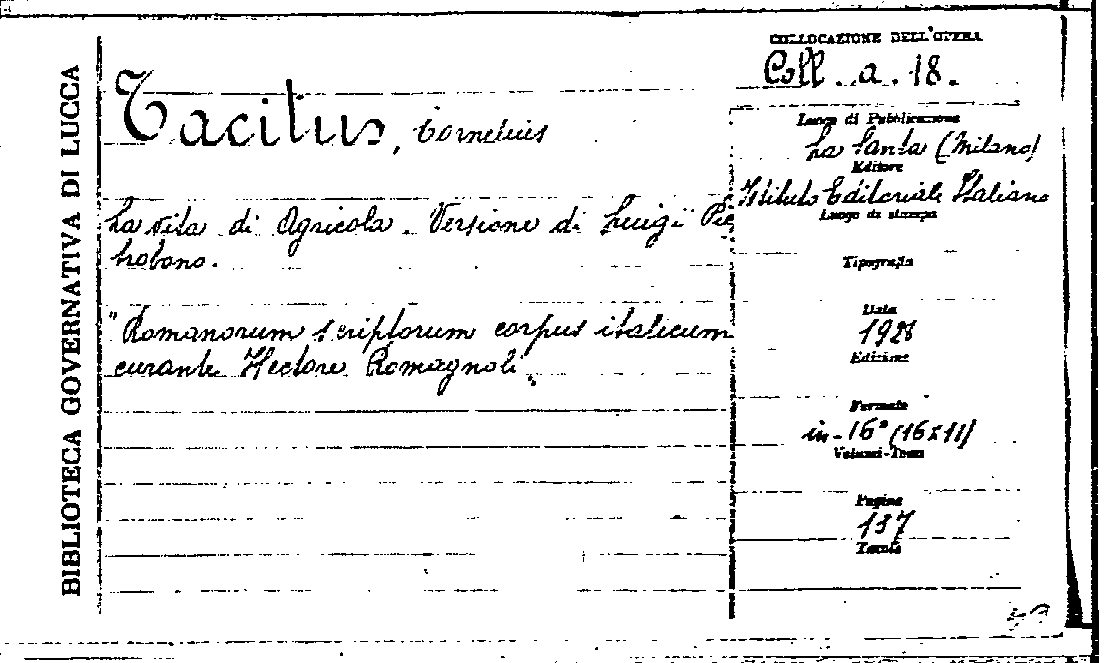 BIBLIOTECA GOVERNATIVA DI LUCCA
Tacitus, Cornelius
La vita di Agricola. Versione di Luigi Pie
trobono.
"Romanorum scriptorum corpus italicum
curante Hectore Romagnoli"
COLLOCAZIONE DELL'OPERA
Coll. a. 18.
Luogo di Pubblicazione
La Santa (Milano)
Editore
Istituto Editoriale Italiano
Luogo di stampa
Tipografia
Data
1928
Edizione
Formato
in-16° (16x11)
Volumi-Tomi
Pagine
137
Tavole